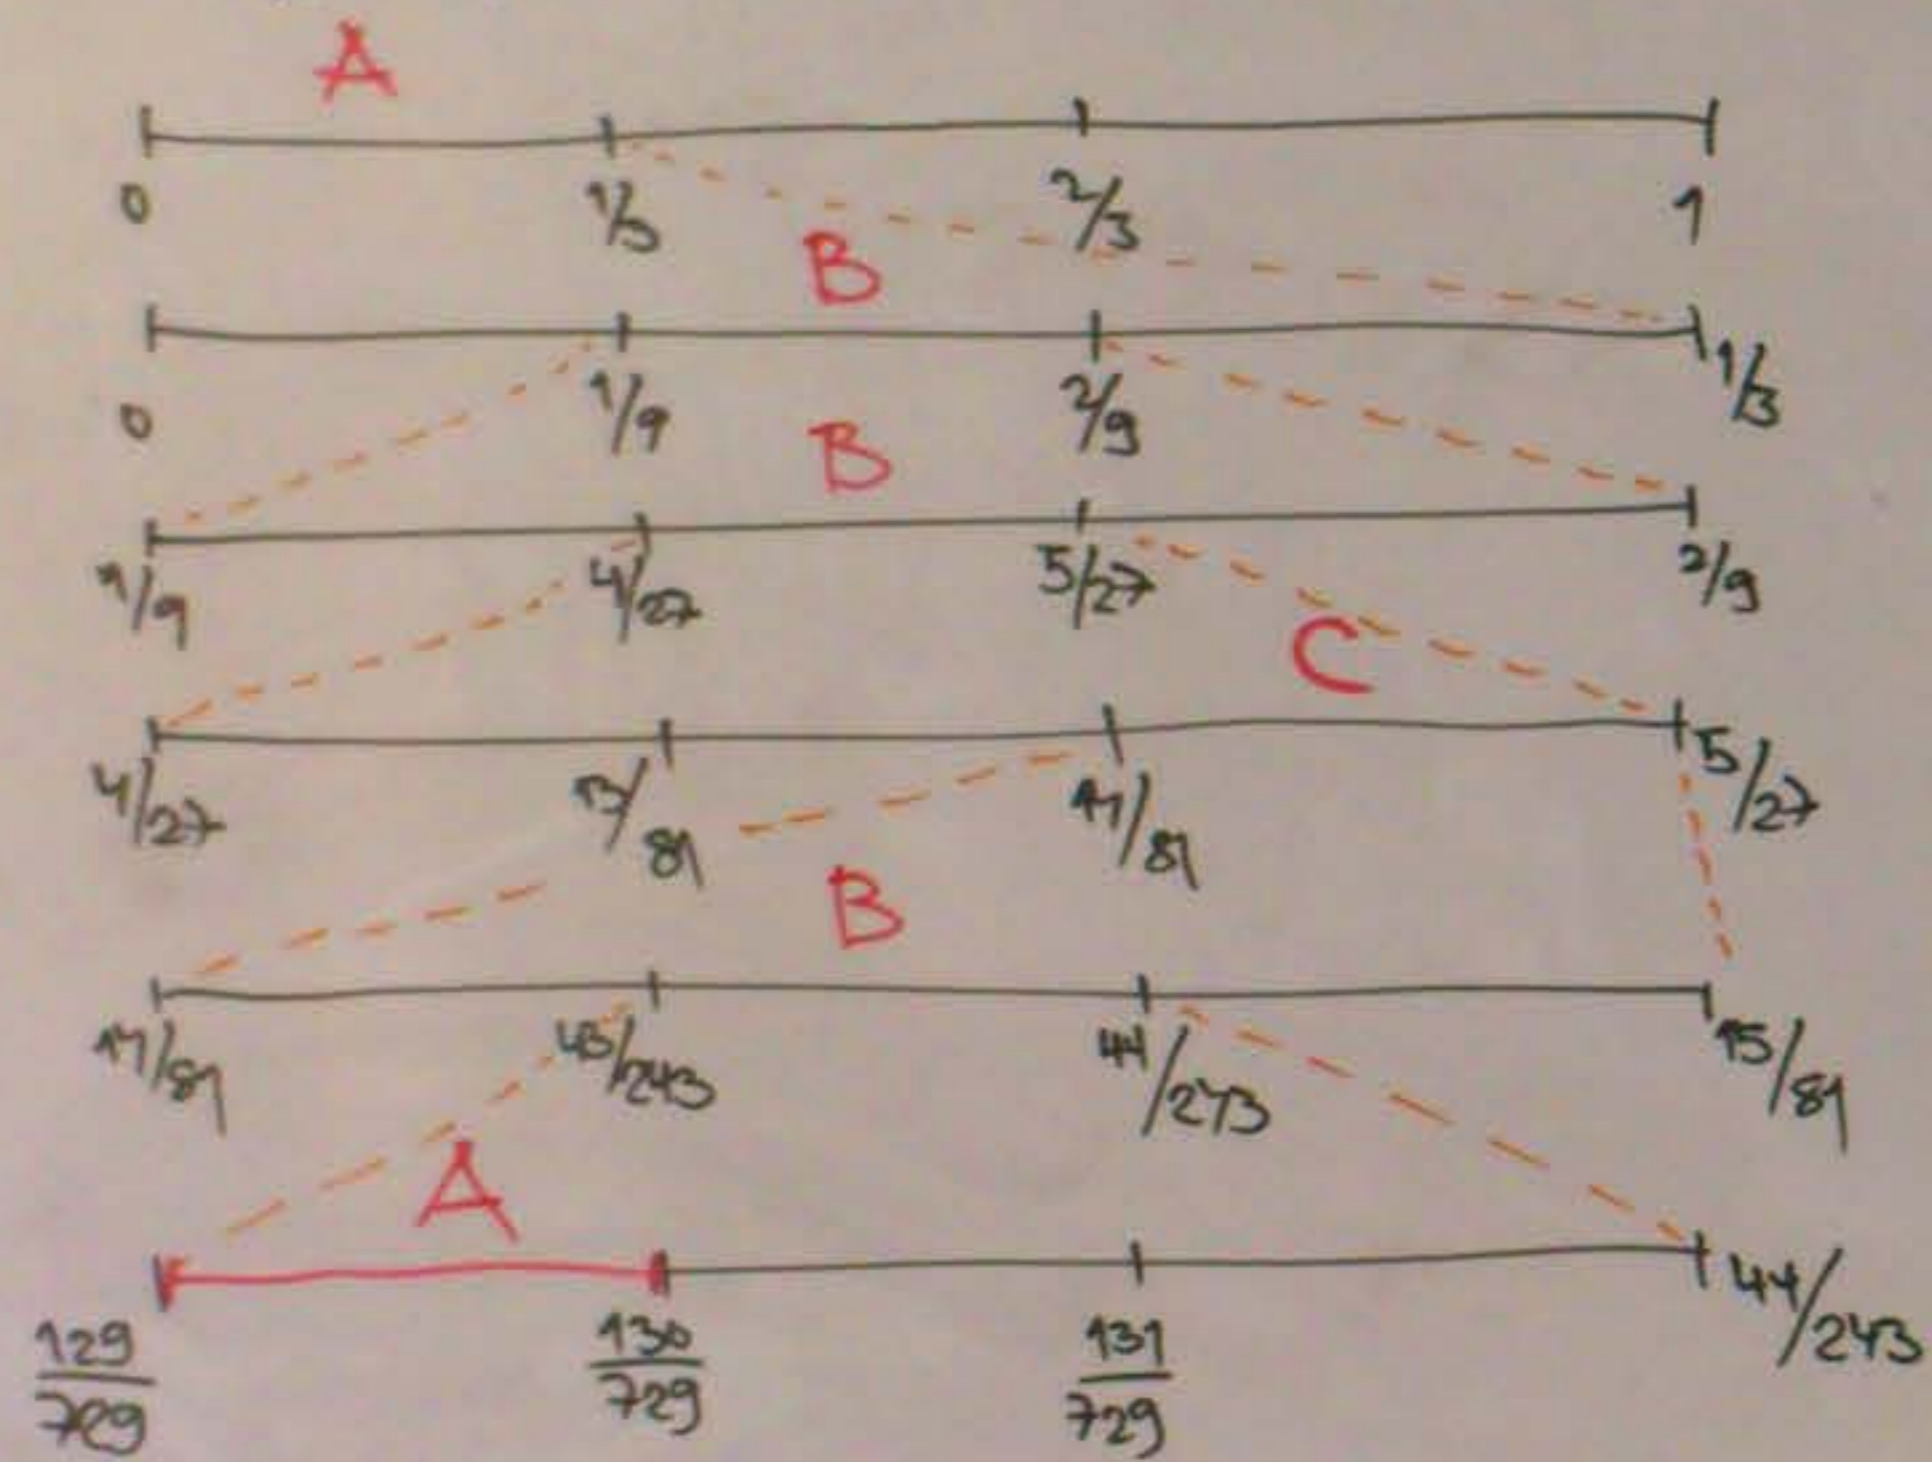 A
0 1/3 2/3 1
B
0 1/9 2/9 1/3
B
1/9 4/27 5/27 2/9
C
4/27 13/81 14/81 5/27
B
14/81 43/243 44/243 15/81
A
129/729 130/729 131/729 44/243